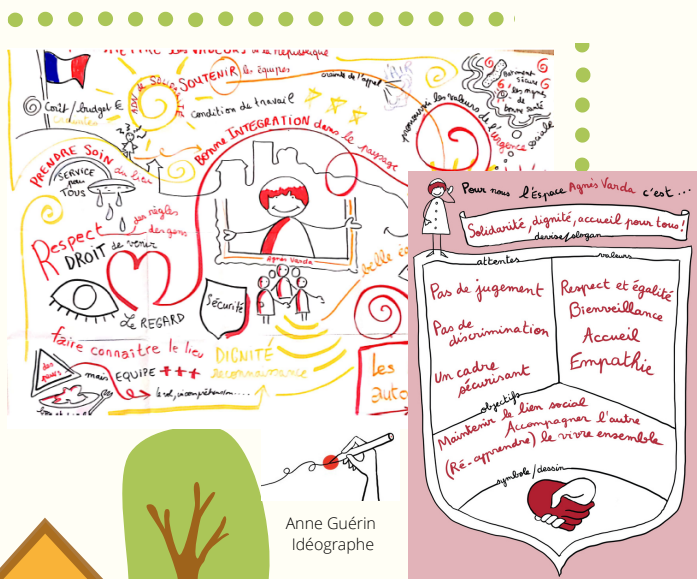 les VALEURS de la République
SOUTENIR les équipes
crainte de l'appel
Coût / budget €
condition du travail
ADN de SOLIDARITÉ
Bonne INTEGRATION dans le paysage
promouvoir les valeurs de l'urgence sociale
Bâtiment
sécure
les signes
de
bonne santé
PRENDRE SOIN du lien
SERVICE
pour
TOUS
Respect
des règles
des gens
DROIT de venir
Le REGARD
Agnès Varda
Sécurité
belle
faire connaître le lieu
DIGNITÉ
reconnaissance
des
peurs
mais
EQUIPE +++
le vol, incompréhension.....
Les
auto
Pour nous l'Espace Agnès Varda c'est ...
Solidarité, dignité, accueil pour tous!
devise/slogan
attentes
valeurs
Pas de jugement
Pas de
discrimination
Un cadre
sécurisant
Respect et égalité
Bienveillance
Accueil
Empathie
objectifs
Maintenir le lien social
Accompagner l'autre
(Ré-apprendre) le vivre ensemble
symbole/dessin
Anne Guérin
Idéographe